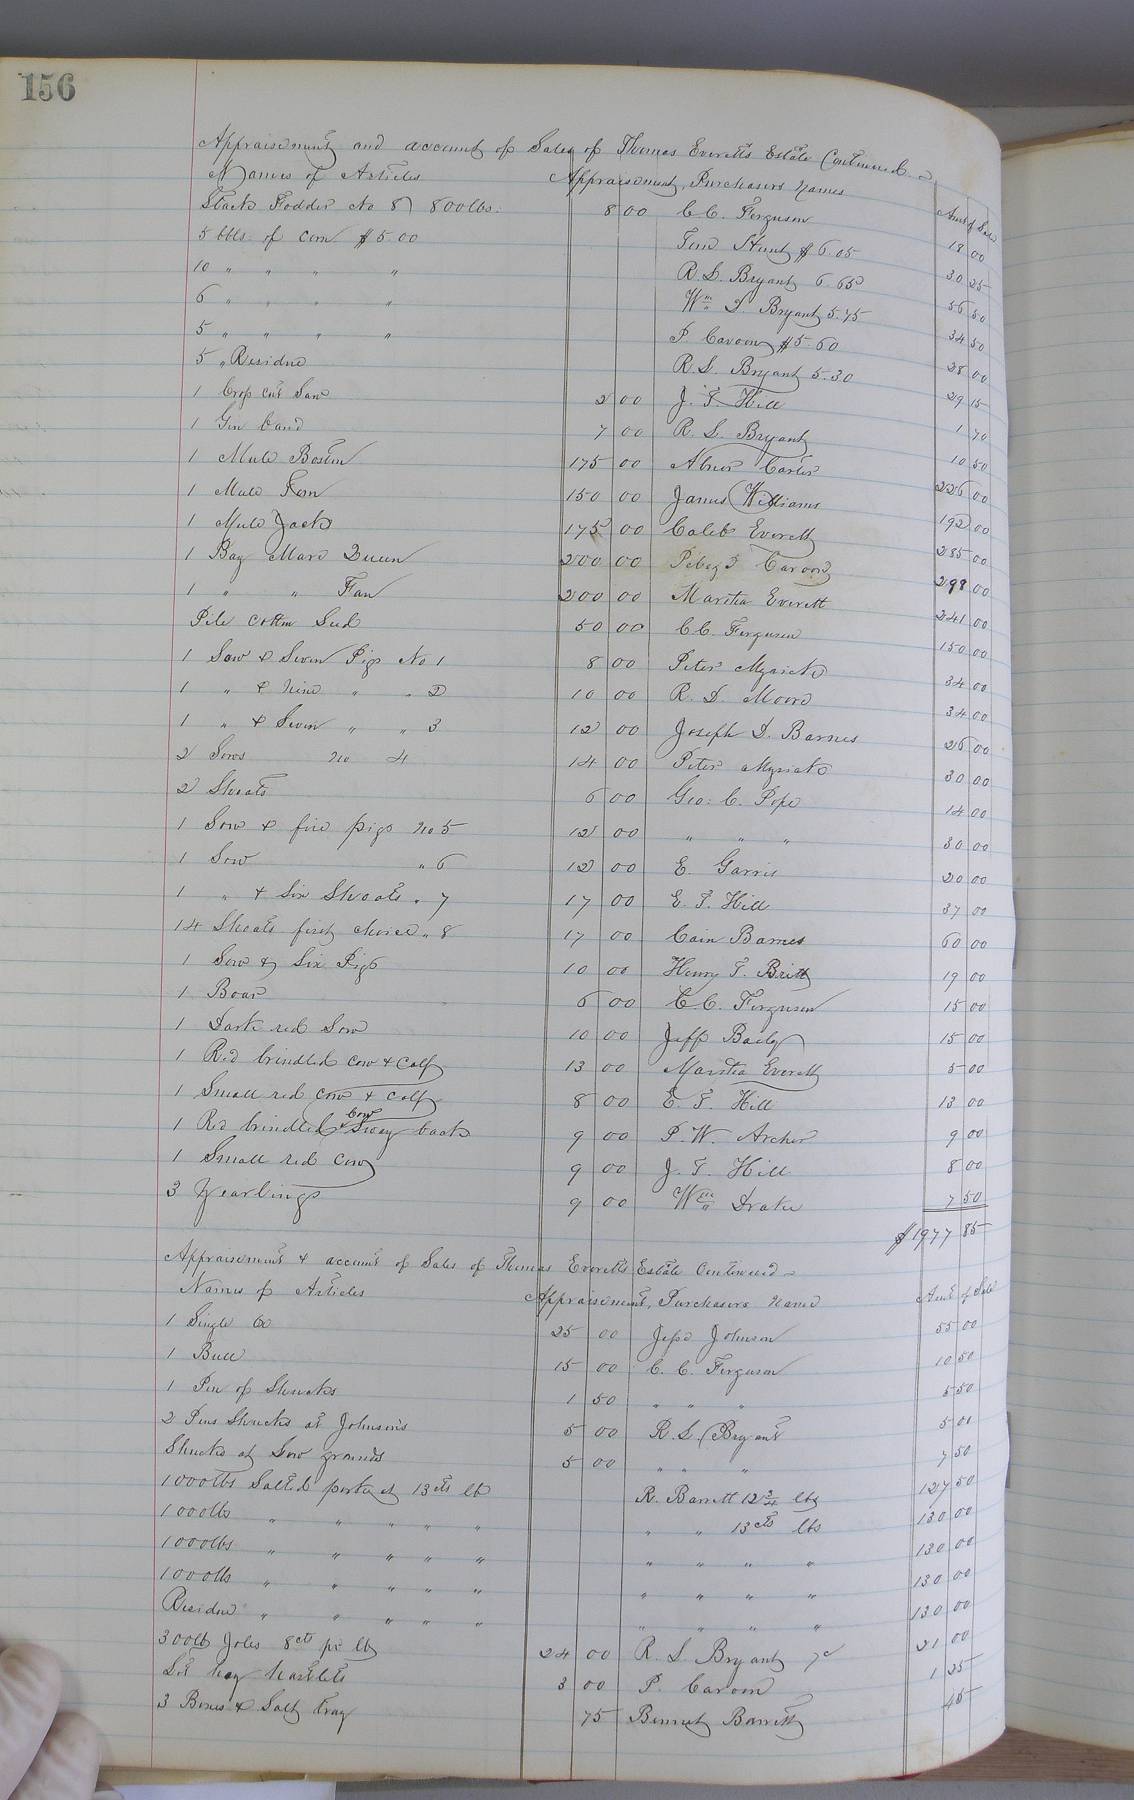 156
Appraisement and account of Sales of Thomas Everett's Estate Continued
Names of Articles Appraisement, Purchasers Names Amt of Sale
Stack Fodder No 8 800 lbs. 8 00 C. C. Ferguson 18 00
5 bbls. of corn $5.00 Tom Hunt $6.05 30 25
10 " " " " R. L. Bryant 5.65 56 50
6 " " " " Wm L. Bryant 5.75 34 50
5 " " " " P. Caroon $5.60 28 00
5 " Residue R. L. Bryant 5.30 29 15
1 Crop cut Saw 2 00 J. T. Hill 1 70
1 Gin band 7 00 R. L. Bryant 10 50
1 Mule Boston 175 00 Abner Carter 226 00
1 Mule Tom 150 00 James Williams 192 00
1 Mule Jack 175 00 Caleb Everett 285 00
1 Bay Mare Queen 200 00 Caroon 298 00
1 " " Fan 200 00 Martha Everett 241 00
Pile cotton Seed 50 00 C. C. Ferguson 150 00
1 Sow & Seven Pigs No 1 8 00 Peter Myrick 34 00
1 " & Nine " " 2 10 00 R. D. Moore 34 00
1 " & Seven " " 3 12 00 Joseph D. Barnes 26 00
2 Sows no 4 14 00 Peter Myrick 30 00
2 Shoats 6 00 Geo: C. Pope 14 00
1 Sow & five pigs no 5 12 00 " " " 30 00
1 Sow " 6 12 00 E. Garris 20 00
1 " & Six Shoats " 7 17 00 E. T. Hill 37 00
14 Shoats first choice " 8 17 00 Cain Barnes 60 00
1 Sow & Six Pigs 10 00 Henry T. Britt 19 00
1 Boar 6 00 C. C. Ferguson 15 00
1 Dark red Sow 10 00 Jeff Bailey 15 00
1 Red brindled cow & calf 13 00 Martha Everett 5 00
1 Small red cow & calf 8 00 E. T. Hill 13 00
1 Red brindled Cow Sway back 9 00 P. W. Archer 9 00
1 Small red cow 9 00 J. T. Hill 8 00
3 Yearlings 9 00 Wm Drake 7 50
$1977 85
Appraisement & account of Sales of Thomas Everett's Estate Continued
Names of Articles Appraisement, Purchasers Name Amt of Sale
1 Single Ox 25 00 Jesse Johnson 55 00
1 Bull 15 00 C. C. Ferguson 10 50
1 Pen of Shucks 1 50 " " " 5 50
2 Pens Shucks at Johnson's 5 00 R. L. Bryant 5 00
Shucks at Low grounds 5 00 " " " 7 50
1000 lbs Salted pork at 13 cts lb R. Barrett 12 3/4 lbs 127 50
1000 lbs " " " " " " " 13 cts lbs 130 00
1000 lbs " " " " " " " " " 130 00
1000 lbs " " " " " " " " " 130 00
Residue " " " " " " " " " 130 00
300 lb Joles 8 cts pr lb 24 00 R. L. Bryant 7 c 21 00
Lot hog haslets 3 00 P. Caroon 1 25
3 Boxes & Salt tray 75 Bennet Barrett 45